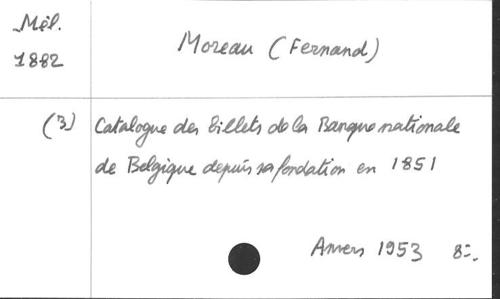 Mél.
1882
Moreau (Fernand)
(3) Catalogue des billets de la Banque nationale
de Belgique depuis sa fondation en 1851
Anvers 1953 8=.